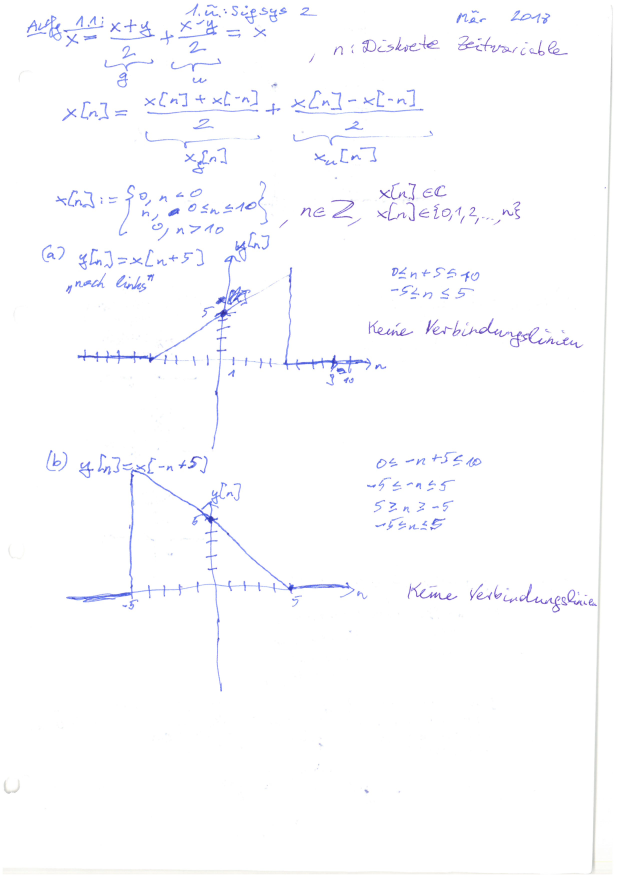 1. Ü.: Sigsys 2 Mär 2018
Aufg 1.1: x = x+y/2 + x-y/2 = x
g u
, n: Diskrete Zeitvariable
x[n] = x[n]+x[-n]/2 + x[n]-x[-n]/2
x_g[n] x_u[n]
x[n] ∈ ℂ
x[n] := { 0, n < 0
n, 0 ≤ n ≤ 10 }, n ∈ ℤ, x[n] ∈ {0,1,2,...,n}
0, n > 10
(a) y[n] = x[n+5] y[n]
"nach links" 0 ≤ n+5 ≤ 10
-5 ≤ n ≤ 5
5
Keine Verbindungslinien
1 10 n
(b) y[n] = x[-n+5] 0 ≤ -n+5 ≤ 10
-5 ≤ -n ≤ 5
y[n]
5 ≥ n ≥ -5
-5 ≤ n ≤ 5
-5 5 n
Keine Verbindungslinien